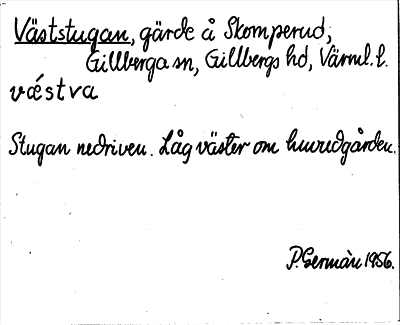 Väststugan, gärde å Skomperud,
Gillberga sn, Gillbergs hd, Värml. l.
vǽstva
Stugan nedriven. Låg väster om huvudgården.
P. Germàn 1956.